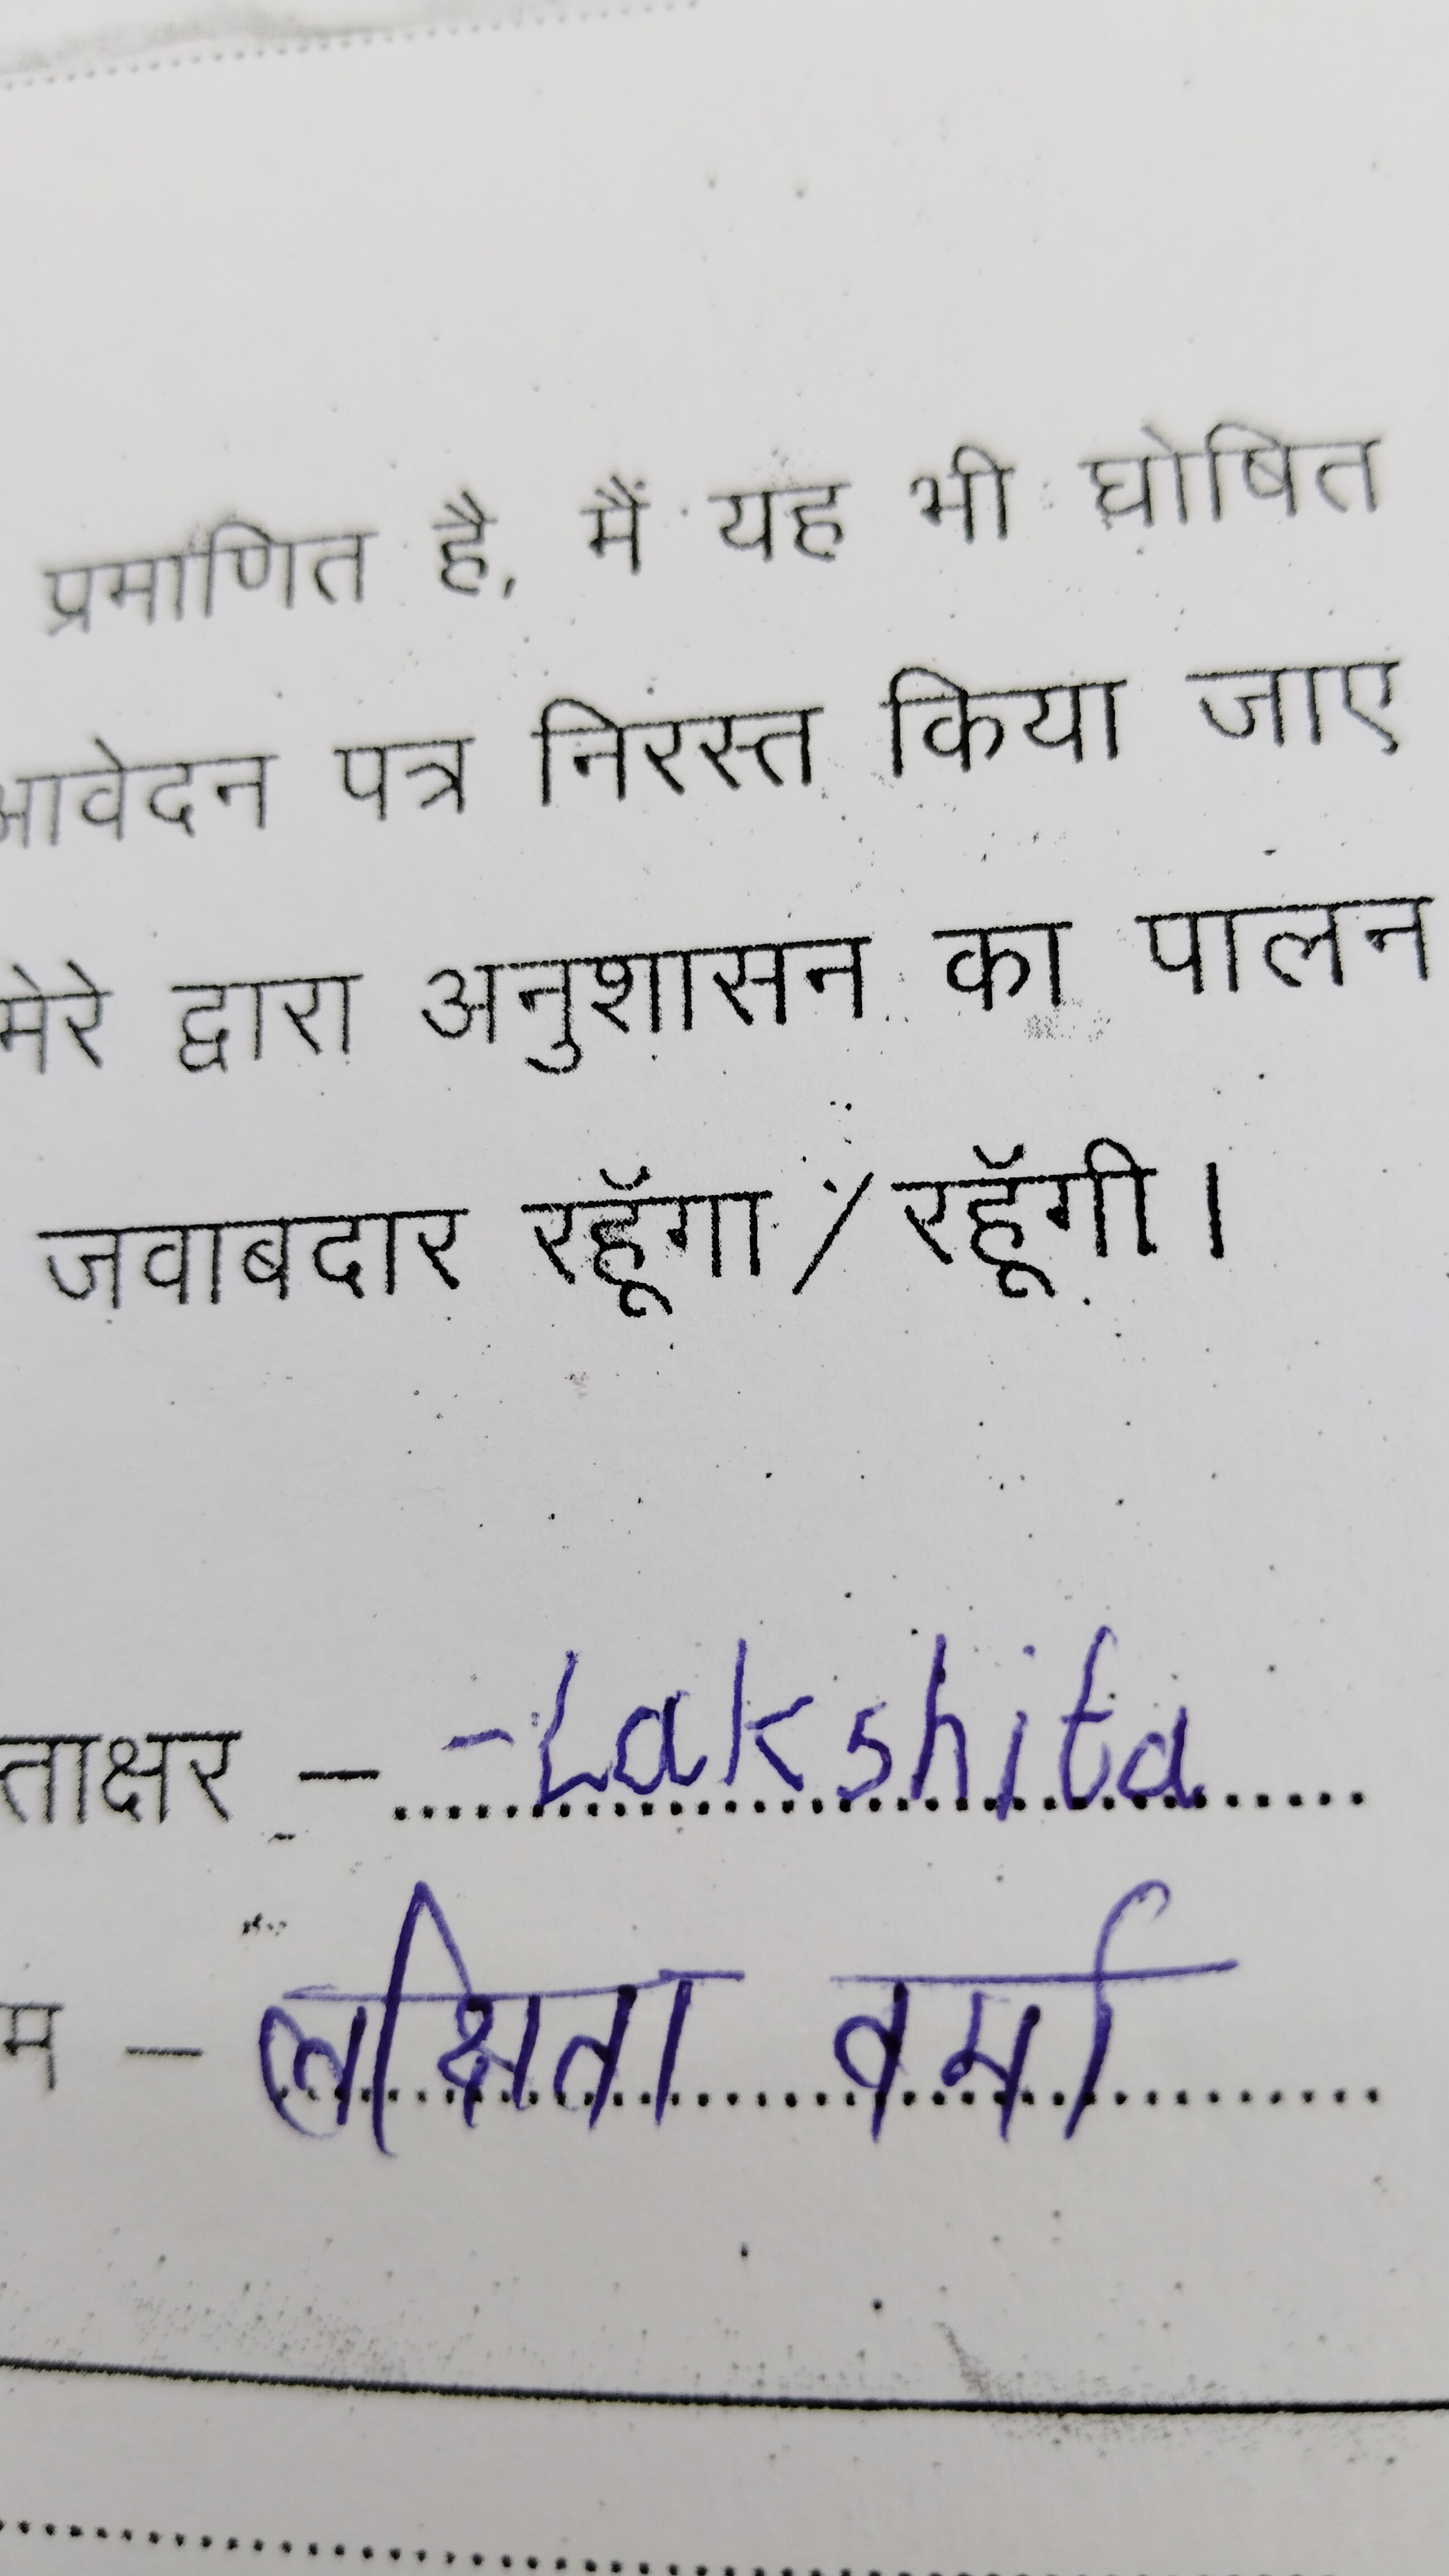 प्रमाणित है, मैं यह भी घोषित
आवेदन पत्र निरस्त किया जाए
मेरे द्वारा अनुशासन का पालन
जवाबदार रहूॅगा / रहूॅगी।
ताक्षर – - Lakshita
म – लक्षिता वर्मा